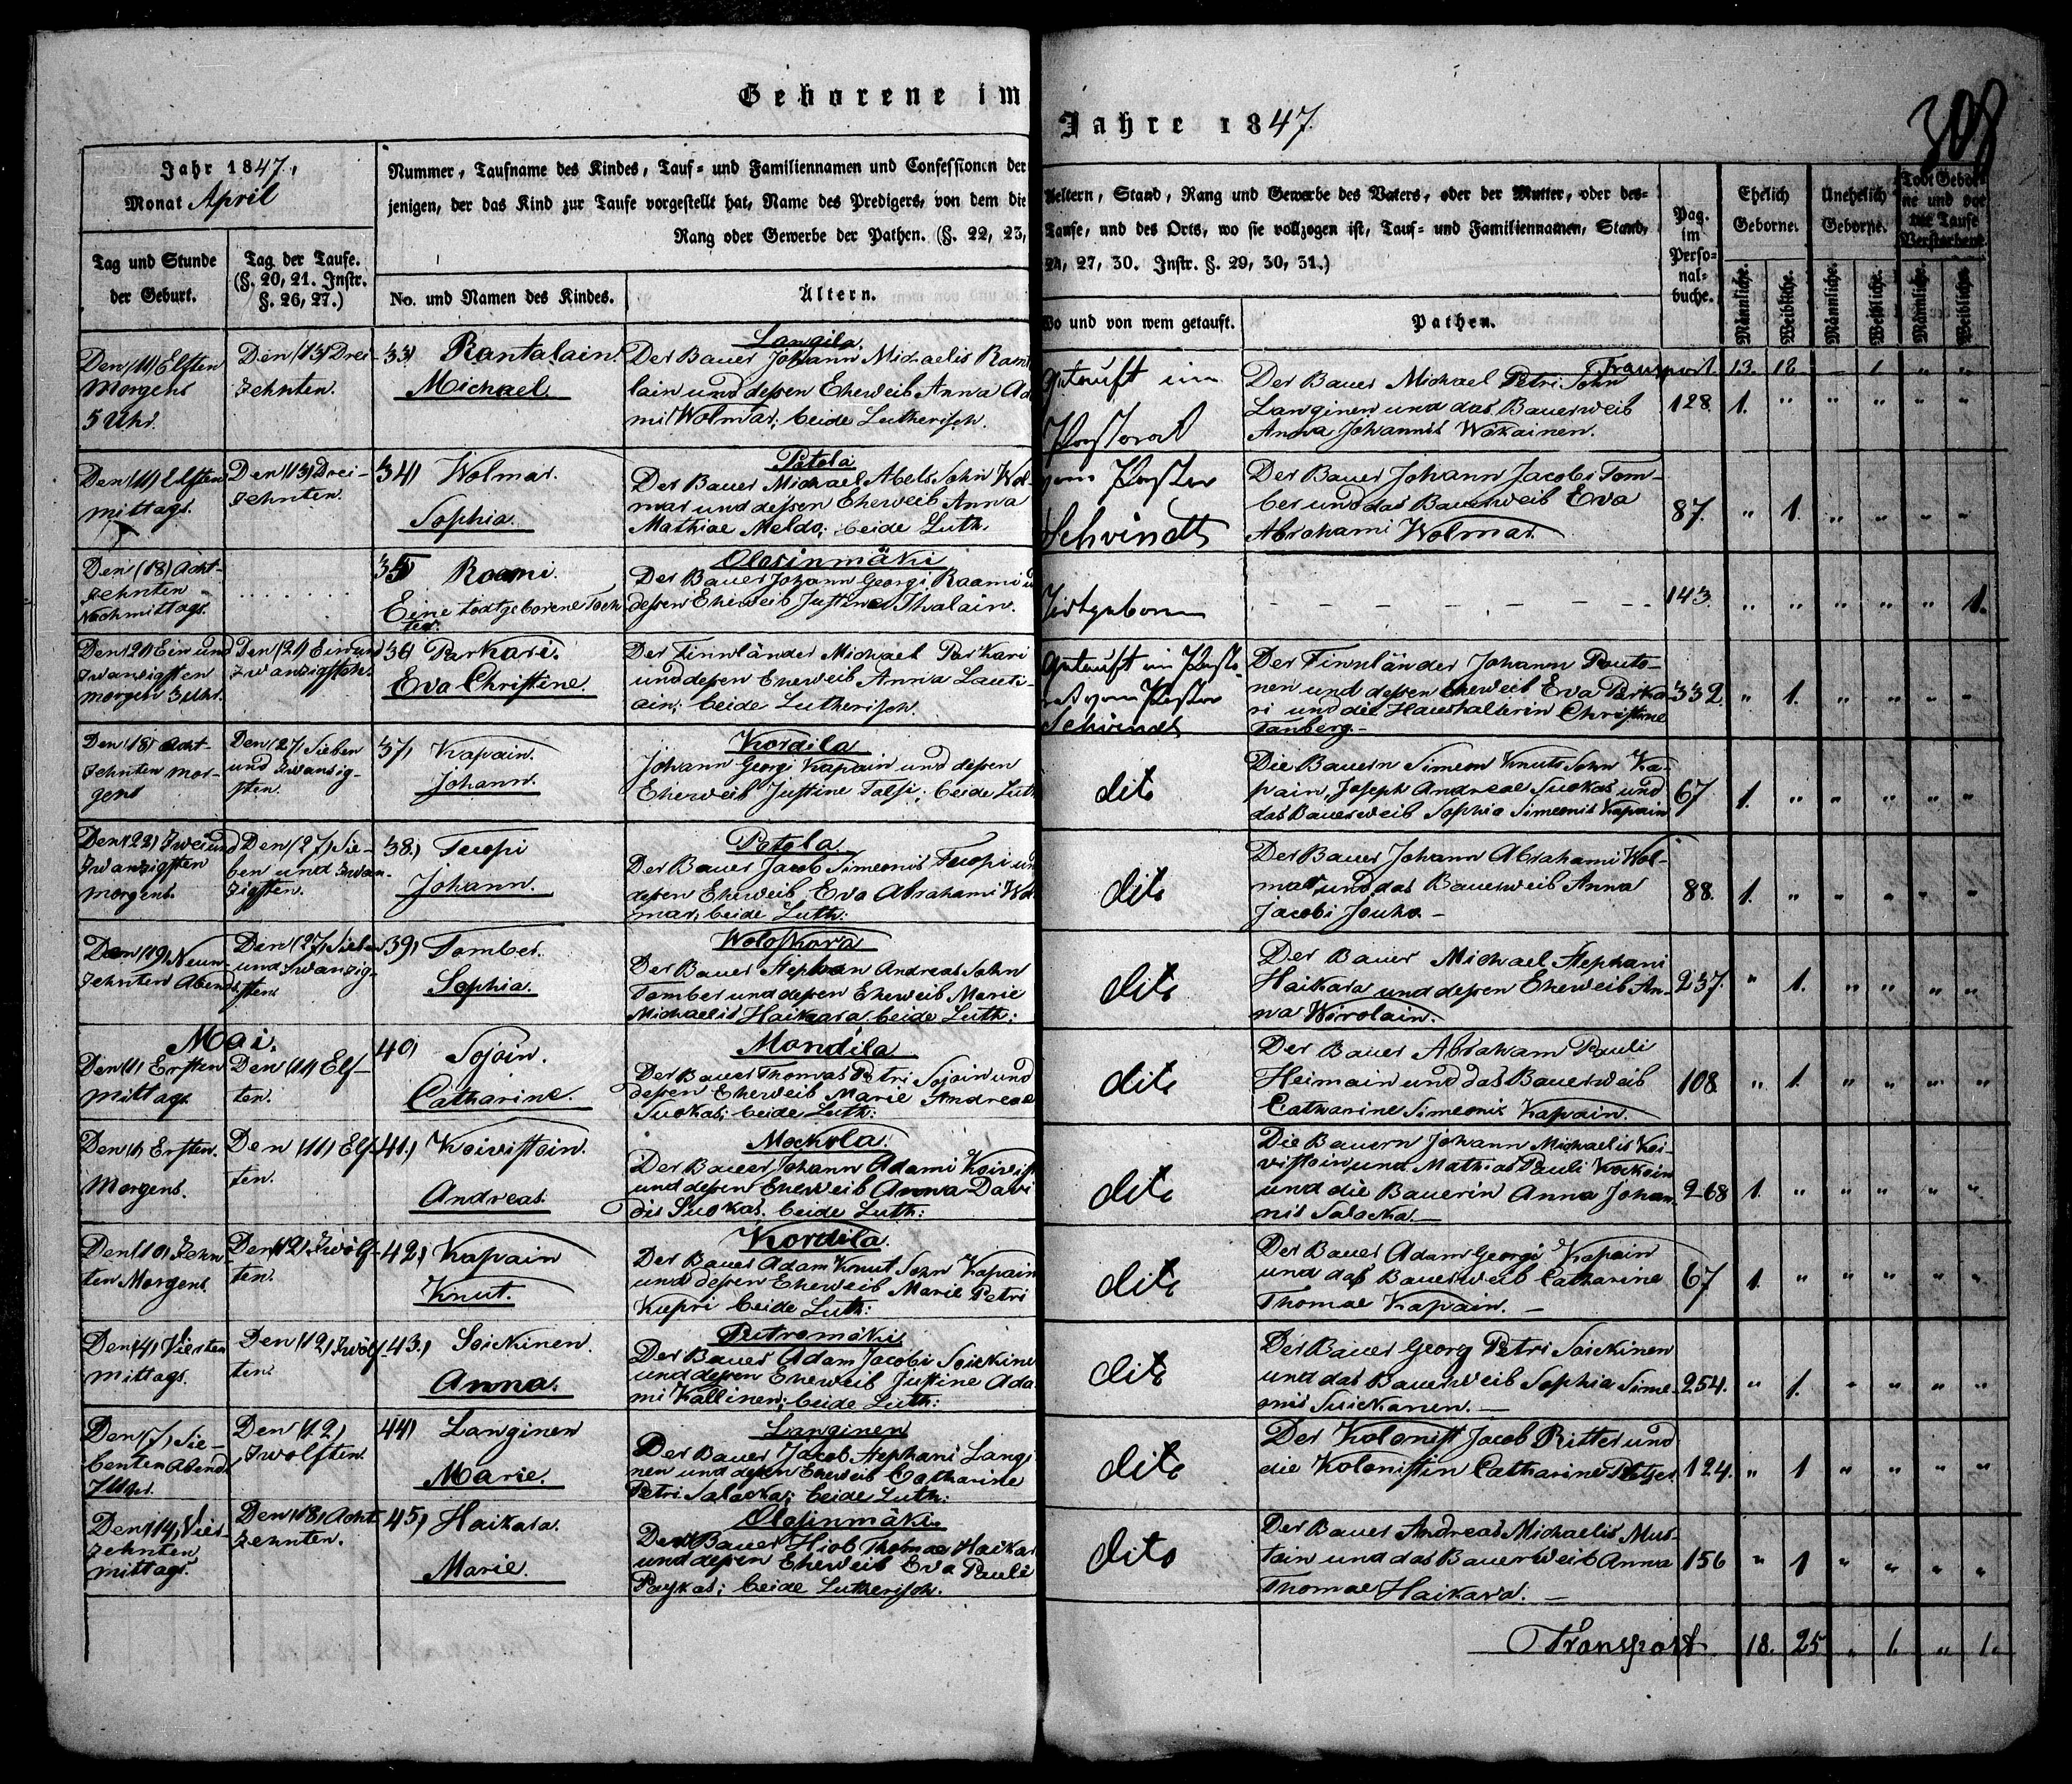 Geborene im
Jahre 1847.
308
Jahr 1847.
Monat April
Nummer, Taufname des Kindes, Tauf- und Familiennamen und Confessionen der
jenigen, der das Kind zur Taufe vorgestellt hat, Name des Predigers, von dem die
Rang oder Gewerbe der Pathen. (§. 22, 23,
Aeltern, Stand, Rang und Gewerbe des Vaters, oder der Mutter, oder des-
Taufe, und des Orts, wo sie vollzogen ist, Tauf- und Familiennamen, Stand,
24, 27, 30. Instr. §. 29, 30, 31.)
Tag und Stunde
der Geburt.
Tag der Taufe.
(§. 20, 21. Instr.
§. 26, 27.)
No. und Namen des Kindes.
Ältern.
Wo und von wem getauft.
Pathen.
Pag.
im
Perso-
nal-
buche.
Ehelich
Geborne.
Unehelich
Geborne.
Todt Gebor-
ne und vor
der Taufe
Verstorbene
Männliche.
Weibliche.
Männliche.
Weibliche.
Männliche.
Weibliche.
Transport 13. 18 – 1 " "
Den (11) Elften
Morgens
5 Uhr.
Den (13) Drei-
zehnten.
33) Rantalain.
Michael.
Langila.
Der Bauer Johann Michaelis Ranta
lain und dessen Eheweib Anna Ada
mi Wolmar; beide Lutherisch.
Getauft im
Pastorat
Der Bauer Michael Petri Sohn
Langinen und das Bauerweib
Anna Johannis Wakainen.
128. 1. " " " " "
Den (11) Elften
mittags.
Den (13) Drei-
zehnten.
34) Wolmar.
Sophia.
Patola
Der Bauer Michael Abels Sohn Wol-
mar und dessen Eheweib Anna
Mathiae Meldo; beide Luth.
vom Pastor
Schvindt
Der Bauer Johann Jacobi Tom-
ber und das Bauerweib Eva
Abrahami Wolmar.
87. " 1. " " " "
Den (18) Acht-
zehnten
Nachmittags.
35 Raami.
Eine todtgeborene Toch-
ter.
Olosinmäki
Der Bauer Johann Georgi Raami u
dessen Eheweib Justine Ihalain.
Todtgeboren
143. " " " " " 1.
Den (21) Ein und
zwanzigsten
morgen 3 Uhr.
Den (21) Ein und
zwanzigsten.
36 Parkari.
Eva Christine.
Der Finnländer Michael Parkari
und dessen Eheweib Anna Lauti-
ain; beide Lutherisch.
Getauft im Pasto-
rat vom Pastor
Schvindt
Der Finnländer Johann Pauto-
nen und dessen Eheweib Eva Parka-
ri und die Haushalterin Christine
Tanberg.
332. " 1. " " " "
Den (18) Acht-
zehnten mor-
gens
Den (27) Sieben
und zwanzig-
sten.
37) Kapain.
Johann.
Kordila
Johann Georgi Kapain und dessen
Eheweib Justine Talsi; beide Luth
dito
Die Bauern Simeon Knuts Sohn Ka-
pain, Joseph Andreae Suokas und
das Bauerweib Sophia Simeonis Kapain
67 1. " " " " "
Den (22) Zwei und
zwanzigsten
morgens.
Den (27) Sie-
ben und zwan-
zigsten.
38.) Teropi
Johann.
Patola
Der Bauer Jacob Simeonis Teropi und
dessen Eheweib Eva Abrahami Wol
mar; beide Luth:
dito
Der Bauer Johann Abrahami Wol-
mar, und das Bauerweib Anna
Jacobi Jouho.
88. 1. " " " " "
Den (19) Neun-
zehnten Abends
Den (27) Sieben
und zwanzig-
sten.
39) Tomber.
Sophia.
Woloskova
Der Bauer Stephan Andreas Sohn
Tomber und dessen Eheweib Marie
Michaelis Haikara. beide Luth:
dito
Der Bauer Michael Stephani
Haikara und dessen Eheweib An-
na Wirolain.
237. " 1. " " " "
Mai.
Den (1) Ersten
mittags.
Den (11) Elf-
ten.
40) Sojoin.
Catharine.
Mondila
Der Bauer Thomas Petri Sojoin und
dessen Eheweib Marie Andreae
Suokas; beide Luth:
dito
Der Bauer Abraham Pauli
Heimain und das Bauerweib
Catharine Simeonis Kapain.
108 " 1. " " " "
Den (1) Ersten.
Morgens.
Den (11) Elf-
ten.
41.) Koivistoin.
Andreas.
Mockola.
Der Bauer Johann Adami Koivist
und dessen Eheweib Anna Davi
dis Suokas. beide Luth:
dito
Die Bauern Johann Michaelis Koi-
vistoin, und Mathias Pauli Kockoin
und die Bauerin Anna Johan-
nis Salacka.
268 1. " " " " "
Den (10) Zehn-
ten Morgens.
Den (12) Zwölf-
ten.
42.) Kapain
Knut.
Kordila.
Der Bauer Adam Knut Sohn Kapain
und dessen Eheweib Marie Petri
Kuepri beide Luth:
dito
Der Bauer Adam Georgi Kapain
und das Bauerweib Catharine
Thomae Kapain.
67 1. " " " " "
Den (4) Vierten
mittags.
Den (12) Zwölf-
ten.
43.) Soickinen.
Anna.
Putromäki
Der Bauer Adam Jacobi Soickine
und dessen Eheweib Justine Ada
mi Kallinen; beide Luth:
dito
Der Bauer Georg Petri Soickinen
und das Bauerweib Sophia Sime-
onis Suickanen.
254. " 1. " " " "
Den (7) Sie-
benten Abends
7 Uhr.
Den (12)
zwölften.
44) Langinen
Marie.
Langinen
Der Bauer Jacob Stephani Langi
nen und dessen Eheweib Catharine
Petri Salacka; beide Luth:
dito
Der Kolonist Jacob Ritter und
die Kolonistin Catharine
124. " 1 " " " "
Den (14) Vier-
zehnten
mittags.
Den (18) Acht
zehnten.
45) Haikara.
Marie.
Olosinmäki.
Der Bauer Hiob Thomae Haikar
und dessen Eheweib Eva Pauli
Paykas; beide Lutherisch.
dito
Der Bauer Andreas Michaelis Mus-
tain und das Bauerweib Anna
Thomae Haikara.
156 " 1 " " " "
Transport 18. 25 " 1. " 1.